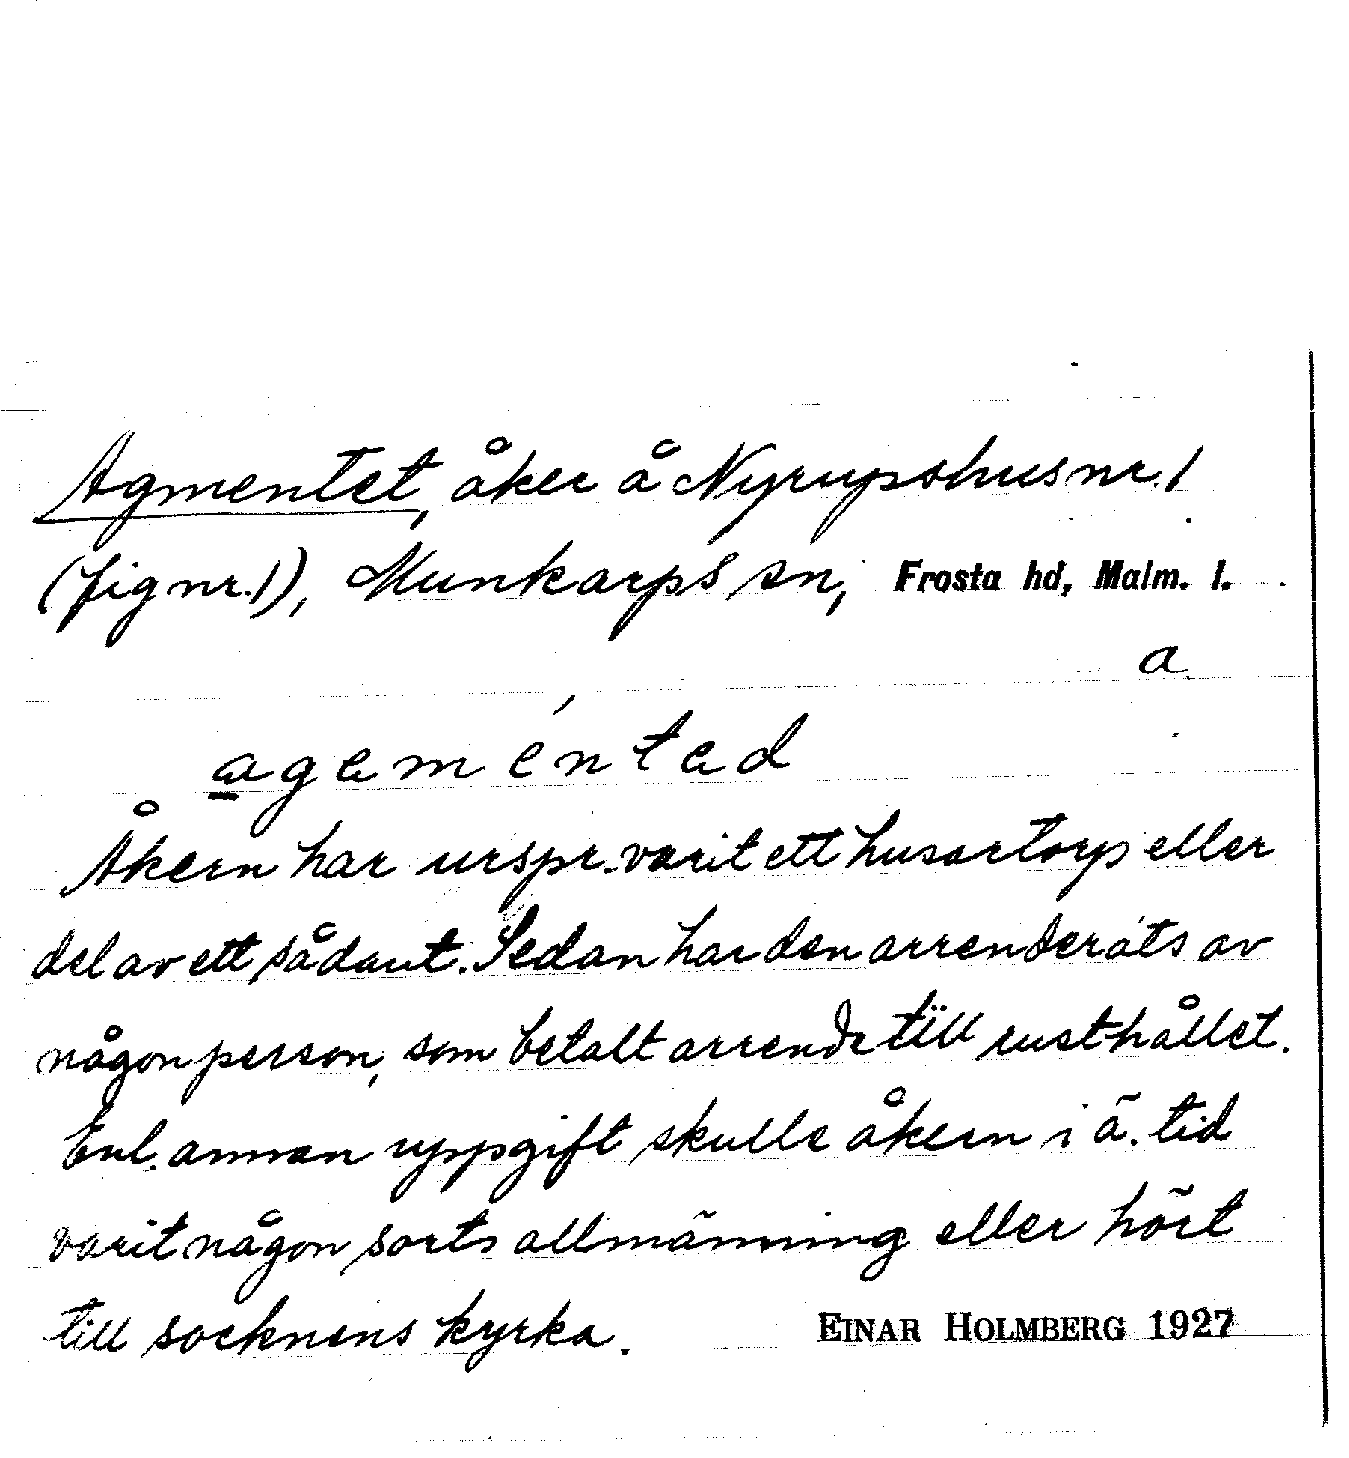 Agmentet, åker å Nyrupshus nr. 1
(fig nr. 1), Munkarps sn, Frosta hd, Malm. l.
a
agəméntəd
Åkern har urspr. varit ett husartorp eller
del av ett sådant. Sedan har den arrenderats av
någon person, som betalt arrende till rusthållet.
Enl. annan uppgift skulle åkern i ä. tid
varit någon sorts allmänning eller hört
till socknens kyrka. EINAR HOLMBERG 1927